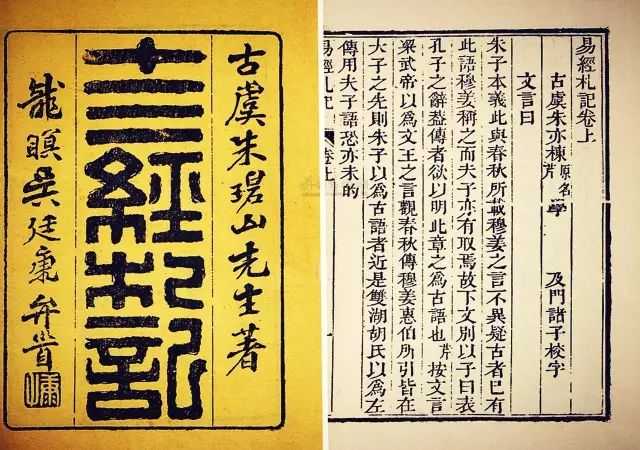 古虞朱珺山先生著
十三經札記
龍瞑吳廷康弁首
易經札記卷上
古虞朱亦棟原名芹學 及門諸子校字
文言曰
朱子本義此與春秋所載穆姜之言不異疑古者已有
此語穆姜稱之而夫子亦有取焉故下文別以子曰表
孔子之辭蓋傳者欲以明此章之為古語也芹按文言
梁武帝以為文王之言觀春秋傳穆姜惠伯所引皆在
夫子之先則朱子以為古語者近是雙湖胡氏以為左
傳用夫子語恐亦未的
易經札記 卷上